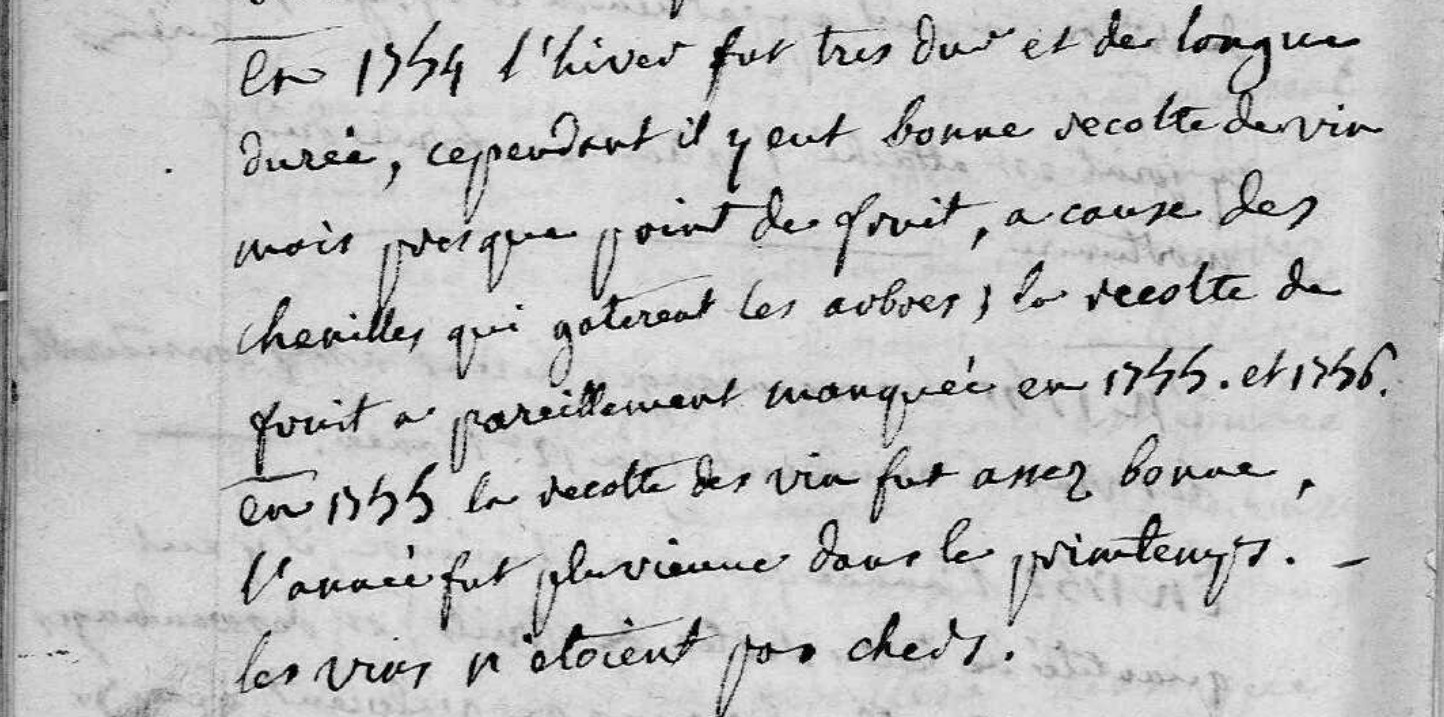 En 1754 l'hiver fut tres dur et de longue
durée, cependant il y eut bonne recolte de vin
mais presque point de fruit, a cause des
chenilles qui gaterent les arbres; la recolte de
fruit a pareillement manquée en 1755. et 1756.
En 1755 la recolte des vin fut assez bonne,
l'année fut pluvieuse dans le printemps. -
les vins n'etoient pas chers.